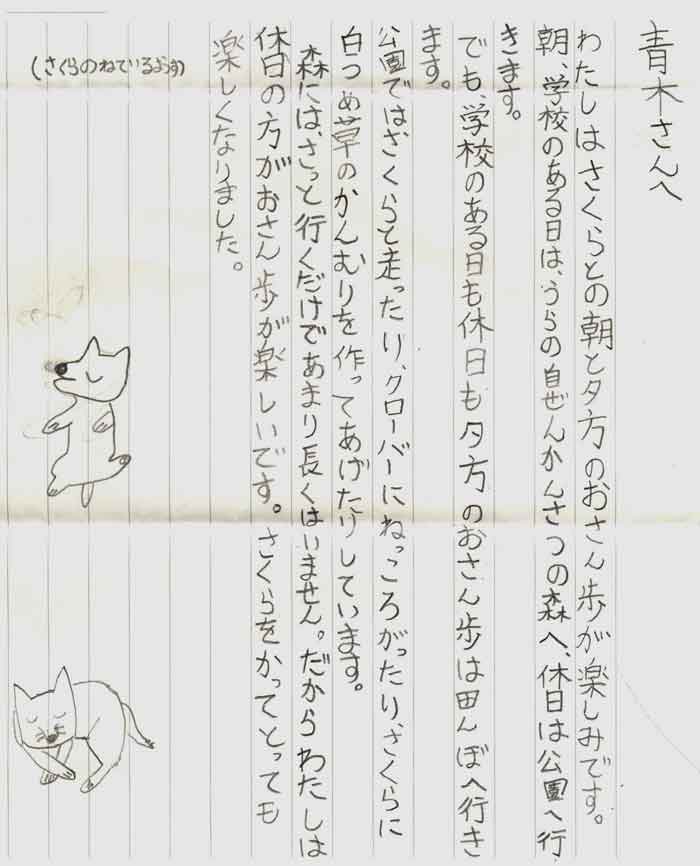 青木さんへ
わたしはさくらとの朝と夕方のおさん歩が楽しみです。
朝、学校のある日は、うらの自ぜんかんさつの森へ、休日は公園へ行
きます。
でも、学校のある日も休日も夕方のおさん歩は田んぼへ行き
ます。
公園ではさくらと走ったり、クローバーにねっころがったり、さくらに
白つめ草のかんむりを作ってあげたりしています。
森には、さっと行くだけであまり長くはいません。だからわたしは
休日の方がおさん歩が楽しいです。さくらをかってとっても
楽しくなりました。
(さくらのねているようす)